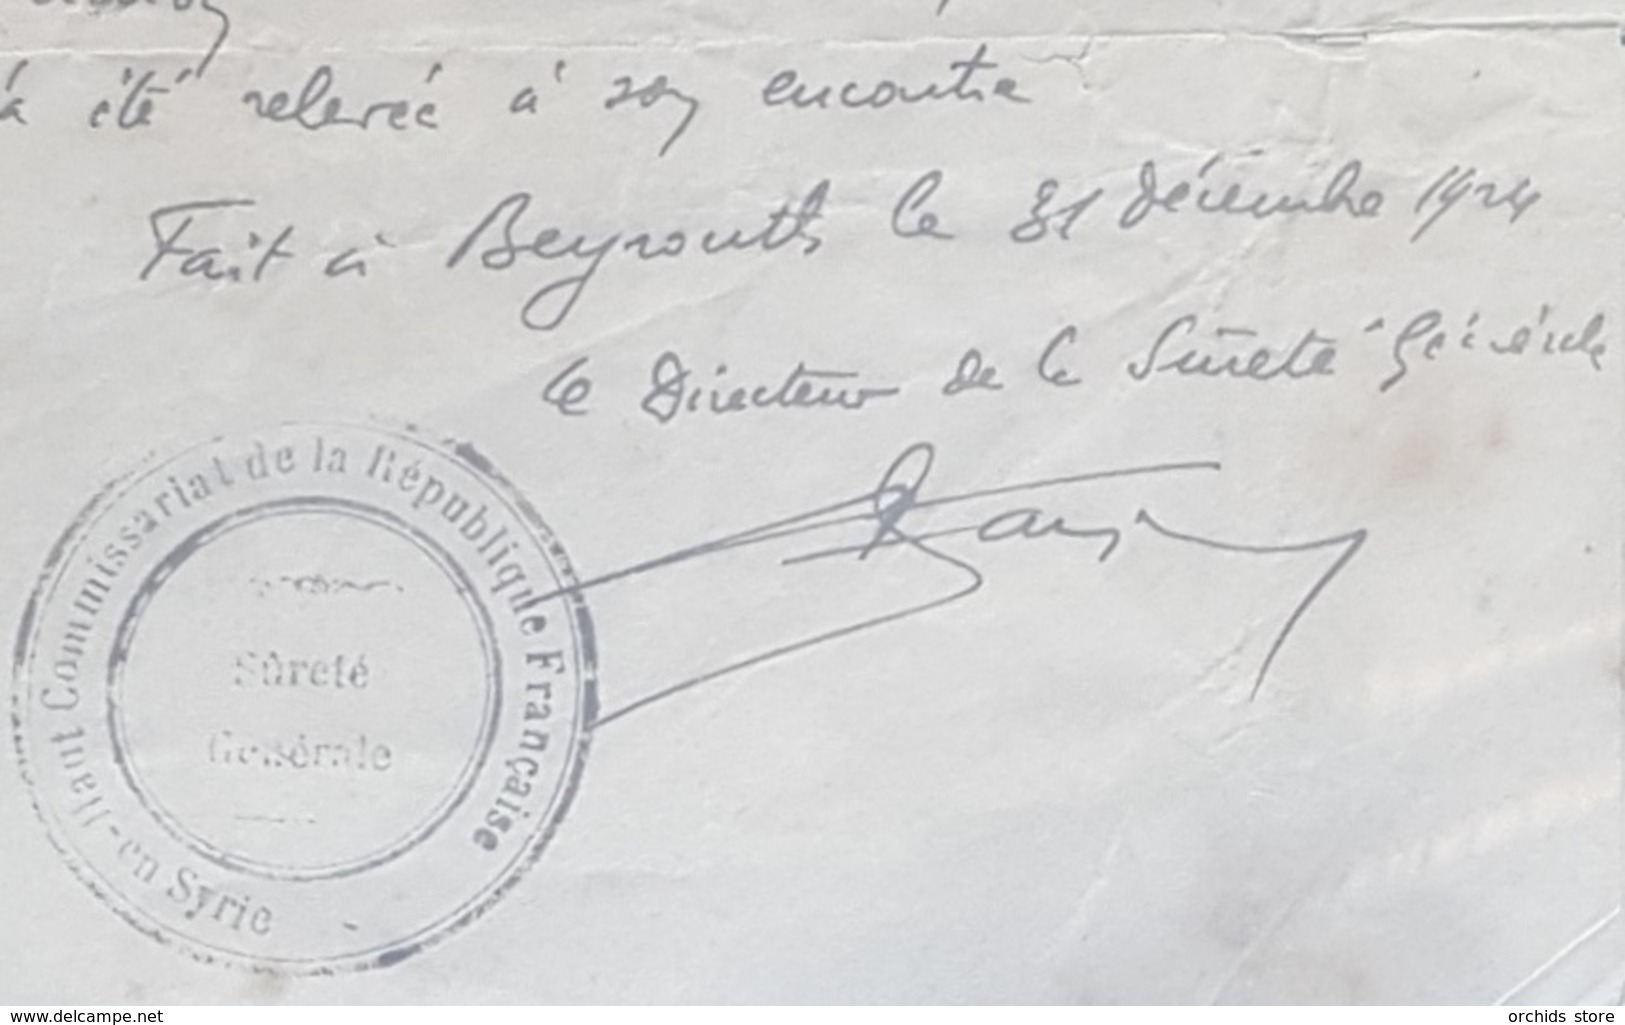 a été relevée à son encontre
Fait à Beyrouth le 31 décembre 1924
Le Directeur de la Sûreté Générale
Haut Commissariat de la République Française
- en Syrie -
Sûreté
Générale
www.delcampe.net
orchids store